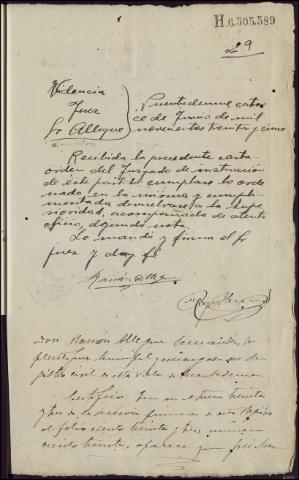 H.6.505.589
29
Providencia
Juez
Sr Allegue
Puentedeume cator
ce de Junio de mil
novecientos treinta y cinco
Recibida la precedente carta
orden del Juzgado de instrucción
de este partido cumplase lo orde
nado en la misma y cumpli
mentada devuelvase a la supe
rioridad, acompañada de atento
oficio, dejando nota
Lo mandó y firma el Sr
juez y doy fé
Ramón Allegue
Don Ramón Allegue
municipal y encargado del Re
gistro civil de esta villa de Puentedeume
Certifico: Que en el tomo treinta
y tres de la sección primera de este Registro
al folio ciento treinta y tres número
ciento treinta, aparece que José